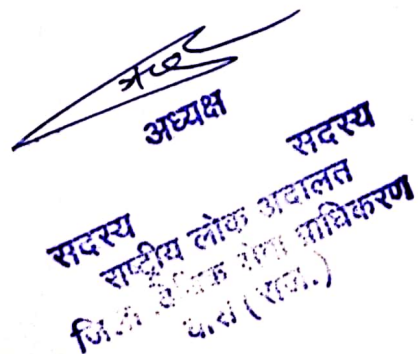 अध्यक्ष
सदस्य सदस्य
राष्ट्रीय लोक अदालत
सेवा प्राधिकरण
(राज.)